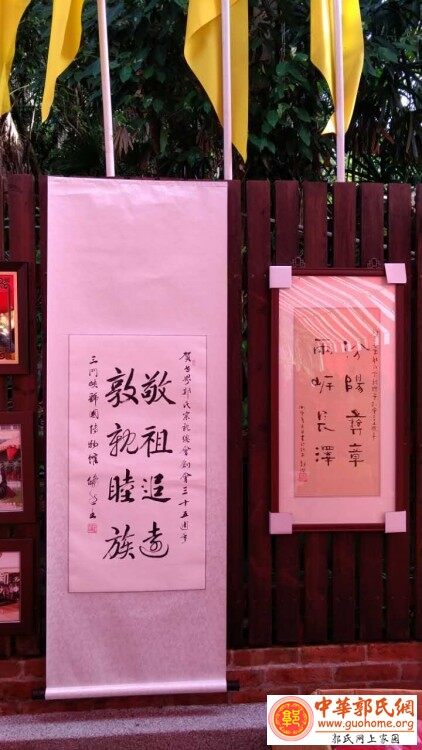 賀世界郭氏宗親總會創會三十五週年
敬祖追遠
敦親睦族
三門峽虢國博物館
汾陽彝章
長澤
中華郭氏網
www.guohome.org
郭氏网上家園